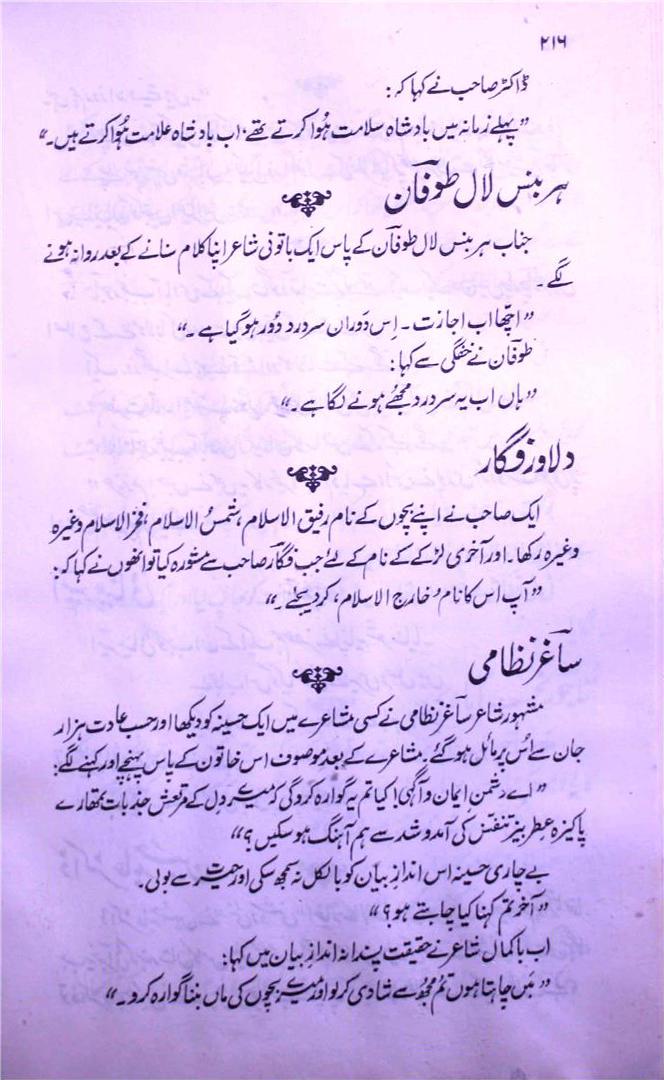 ۲۱۶
ڈاکٹر صاحب نے کہا کہ:
”پہلے زمانہ میں بادشاہ سلامت ہُوا کرتے تھے، اب بادشاہ علامت ہُوا کرتے ہیں۔“
ہر بنس لال طوفان
جناب ہر بنس لال طوفان کے پاس ایک باتونی شاعر اپنا کلام سنانے کے بعد روانہ ہونے
لگے۔
”اچھا اب اجازت۔ اِس دَوران سر درد دُور ہو گیا ہے۔“
طوفان نے خفگی سے کہا:
”ہاں اب یہ سر درد مجھے ہونے لگا ہے۔“
دلاور فگار
ایک صاحب نے اپنے بچوں کے نام رفیق الاسلام، شمسُ الاسلام، فخر الاسلام وغیرہ
وغیرہ رکھا۔ اور آخری لڑکے کے نام کے لئے جب فگار صاحب سے مشورہ کیا تو انھوں نے کہا کہ:
”آپ اس کا نام ’خارج الاسلام‘ کر دیجئے۔“
ساغر نظامی
مشہور شاعر ساغر نظامی نے کسی مشاعرے میں ایک حسینہ کو دیکھا اور حسب عادت ہزار
جان سے اُس پر مائل ہو گئے۔ مشاعرے کے بعد موصوف اس خاتون کے پاس پہنچے اور کہنے لگے:
”اے دشمن ایمان و آگہی! کیا تم یہ گوارہ کرو گی کہ میرے دل کے مرتعش جذبات تمھارے
پاکیزہ عطر بیز تنفس کی آمد و شد سے ہم آہنگ ہو سکیں؟“
بے چاری حسینہ اس اندازِ بیان کو بالکل نہ سمجھ سکی اور حیرت سے بولی۔
”آخر تم کہنا کیا چاہتے ہو؟“
اب باکمال شاعر نے حقیقت پسندانہ اندازِ بیان میں کہا:
”مَیں چاہتا ہوں تم مجھ سے شادی کر لو اور میرے بچوں کی ماں بننا گوارہ کرو۔“